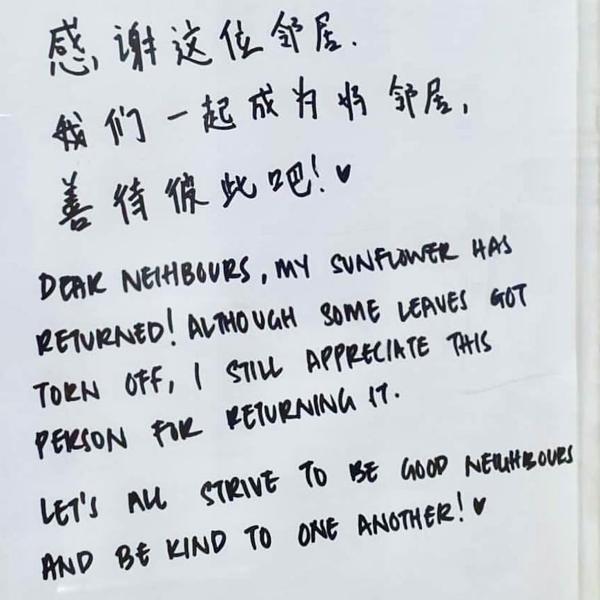 感谢这位邻居.
我们一起成为好邻居,
善待彼此吧!♥
DEAR NEIHBOURS, MY SUNFLOWER HAS
RETURNED! ALTHOUGH SOME LEAVES GOT
TORN OFF, I STILL APPRECIATE THIS
PERSON FOR RETURNING IT.
LET'S ALL STRIVE TO BE GOOD NEIGHBOURS
AND BE KIND TO ONE ANOTHER! ♥